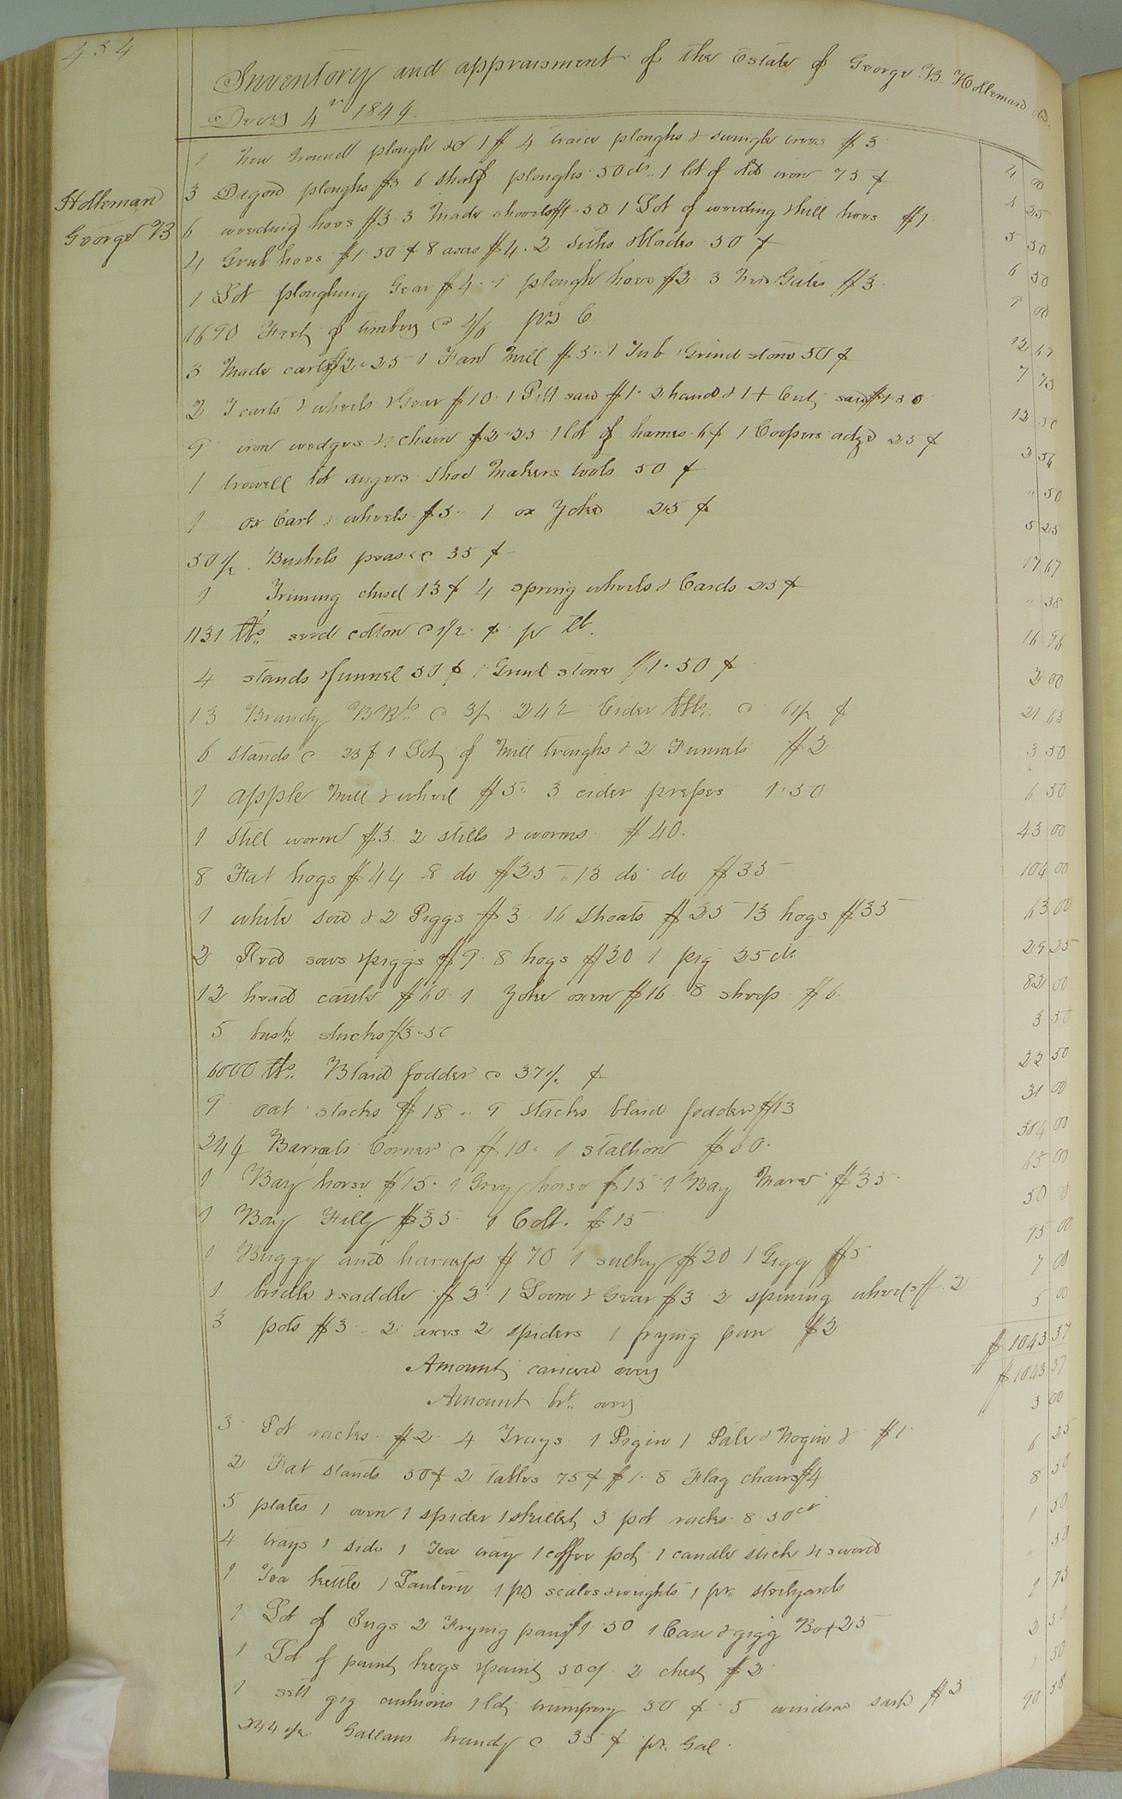 454
Inventory and appraisment of the Estate of George B. Holleman
Decr 4th 1844.
Holleman
George B
1 New Ground plough &c 1 $ 4 ploughs & swingle trees $3 4 00
3 Dagon ploughs $3 6 sharp ploughs 50 cts. 1 lot of old iron 75 ¢ 4 25
6 weeding hoes $3 3 Spade shovels 50 1 Lot of weeding & hill hoes $1 5 50
4 Grub hoes $1.50 ¢ 8 axes $4. 2 blades 50 ¢ 6 50
1 Lot ploughing Gear $4. 1 plough hove $2 3 $3 9 00
1690 Feet of timber @ 4/6 pr C 12 67
3 carts $2.25 1 Fan Mill $5. 1 Tub Grind stone 50 ¢ 7 75
2 carts & wheels & Gear $10. 1 Pitt saw $1. 2 hand & 1 + Cut saw $1 50 12 50
9 iron wedges & chain $2-25 1 lot of hames 6¢ 1 Coopers adze 25 ¢ 2 56
1 trowell lot augers Shoe Makers tools 50 ¢ " 50
1 ox Cart & wheels $5. 1 ox Yoke 25 ¢ 5 25
50 1/2 Bushels peas @ 35 ¢ 17 67
1 Triming chisel 13 ¢ 4 spring wheels & Cards 25 ¢ " 38
1131 lbs seed cotton @ 1 1/2 ¢ pr lb. 16 96
4 stands & funnel 50 ¢ 1 Grind stone $1.50 ¢ 2 00
13 Brandy BBls @ 3/ 242 Cider @ 6 1/2 ¢ 21 63
6 stands @ 25 ¢ 1 Lot of Mill troughs & 2 Funnels $2 3 50
1 apple Mill & wheel $5. 3 cider presses 1.50 6 50
1 Still worm $3 2 stills & worms $40. 43 00
8 Fat hogs $44 8 do $25 - 13 do do $35 104 00
1 white sow & 2 Piggs $3 16 Shoats $25 13 hogs $35 63 00
2 Red sows & piggs $9. 8 hogs $20 1 pig 25 cts 29 25
12 head cattle $60. 1 Yoke oxen $16 8 sheep $6. 82 00
5 stacks $3-50 3 50
6000 lbs. Blaid fodder @ 37 1/2 ¢ 22 50
9 oat stacks $18. 9 stacks blaid fodder $13 31 00
244 Barrels Corn @ $10. 1 stallion $60. 304 00
1 Bay horse $15. 1 Grey horse $15 1 Bay Mare $35 65 00
1 Bay Filly $35 1 Colt. $15 50 0
1 Buggy and harness $70 1 sulky $20 1 Gigg $5 95 00
1 bridle & saddle $2. 1 Loom & Gear $3 2 spinning wheels $2 7 00
3 pots $3. 2 2 spiders 1 frying pan $2 5 00
$1043 37
Amount carried over $1043 37
Amount brt. over
3 Pot racks $2. 4 Trays 1 Pigin 1 Pale & Nogin & $1. 3 00
2 Fat stands 50¢ 2 tables 75 ¢ $1. 8 Flag chairs $4 6 25
5 plates 1 oven 1 spider 1 skillet 3 pot racks 8 50 ct 8 50
4 trays 1 side 1 Tea tray 1 coffee pot 1 candle stick & sword 1 50
1 Tea kettle 1 Lantern 1 pr scales & weights 1 pr. stelyards 50
1 Lot of Jugs 2 Frying pans $1 50 1 Case & gigg Box 25 1 75
1 Lot of paint kegs & paint 50 ¢ 2 chest $2 2 50
1 sett gig cushions 1 lot trumpery 50 ¢ 5 window sash $3 50
244 1/2 Gallons brandy @ 35 ¢ pr. Gal. 90 58